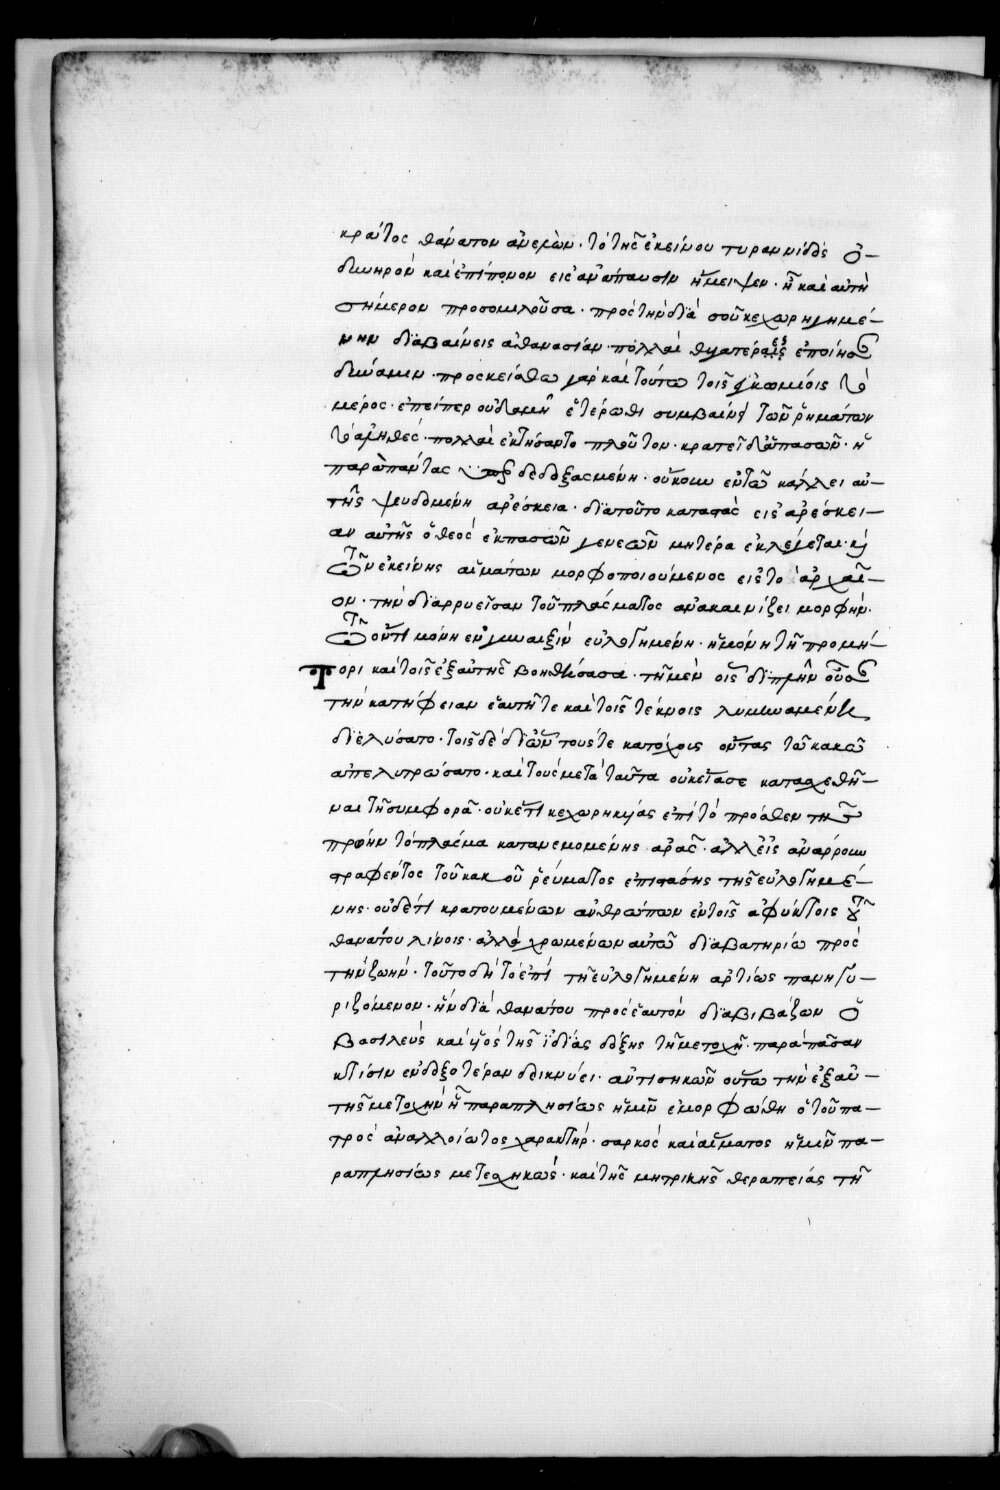 κράτος θάνατον ἀνελὼν· τὸ τῆς ἐκείνου τυραννίδος ὀ-
δυνηρὸν καὶ ἐπίπονον εἰς ἀνάπαυσιν ἤμειψεν· ᾗ καὶ αὐτὴ
σήμερον προσομιλοῦσα· πρὸς τὴν διὰ σοῦ κεχωρηγημέ-
νην διαβαίνεις ἀθανασίαν· πολλαὶ θυγατέρες ἐποίησαν
δύναμιν· προσκείσθω γὰρ καὶ τοῦτο τοῖς ἐγκωμίοις τὸ
μέρος· ἐπείπερ οὐδαμῆ ἑτέρωθι συμβαίνει τῶν ῥημάτων
τὸ ἀληθές· πολλαὶ ἐκτήσαντο πλοῦτον· κρατεῖ δ' ἁπασῶν· ἡ
παρὰ πάντας δεδοξασμένη· οὔκουν ἐν τῶ κάλλει αὐ-
τῆς ψευδομένη ἀρέσκεια· διατοῦτο καταβὰς εἰς ἀρέσκει-
αν αὐτῆς ὁ θεὸς ἐκ πασῶν γενεῶν μητέρα ἐκλέγεται· κ(αὶ)
τῶν ἐκείνης αἱμάτων μορφοποιούμενος εἰς τὸ ἀρχαῖ-
ον· τὴν διαρρυεῖσαν τοῦ πλάσματος ἀνακαινίζει μορφήν·
οὕτω μόνη ἐν γυναιξὶν εὐλογημένη· ἡ μόνη τῆ προμή-
τορι καὶ τοῖς ἐξ αὐτῆς βοηθήσασα· τῆ μὲν
τὴν κατήφειαν ἑαυτῆ τε καὶ τοῖς τέκνοις λυμηναμένη
διελύσατο· τοὺς δὲ κατόχους ὄντας τῶ κακῶ
ἀπελυτρώσατο· καὶ τοὺς μετὰ ταῦτα οὐκ εἴασε κατασχεθῆ-
ναι τῆ συμφορᾶ· οὐκέτι κεχωρηκυίας ἐπὶ τὸ πρόσθεν τῆς
πρώην τὸ πλάσμα κατανεμομένης ἀρᾶς· ἀλλ' εἰς ἀνάρρουν
στραφέντος τοῦ κακοῦ ῥεύματος ἐπιστάσης τῆς εὐλογημέ-
νης· οὐδέτι κρατουμένων ἀνθρώπων ἐν τοῖς ἀφύκτοις τοῦ
θανάτου λίνοις· ἀλλὰ χρωμένων αὐτῶ διαβατηρίω πρὸς
τὴν ζωήν· τοῦτο δὴ τὸ ἐπὶ τῆ εὐλογημένη ἀρτίως πανηγυ-
ριζόμενον· ἣν διὰ θανάτου πρὸς ἑαυτὸν διαβιβάζων ὁ
βασιλεὺς καὶ υἱὸς τῆς ἰδίας δόξης τῆ μετοχῆ· παρὰ πᾶσαν
κτίσιν ἐνδοξοτέραν δεικνύει· ἀντισηκῶν οὕτω τὴν ἐξ αὐ-
τῆς μετοχὴν ᾗ παραπλησίως ἡμῖν ἐμορφώθη ὁ τοῦ πα-
τρὸς ἀναλλοίωτος χαρακτήρ· σαρκὸς καὶ αἵματος ἡμῖν πα-
ραπλησίως μετεσχηκὼς· καὶ τῆς μητρικῆς θεραπείας τῆ